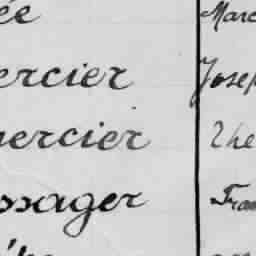 ée Marc
ercier Josep
ercier The
ssager Fran